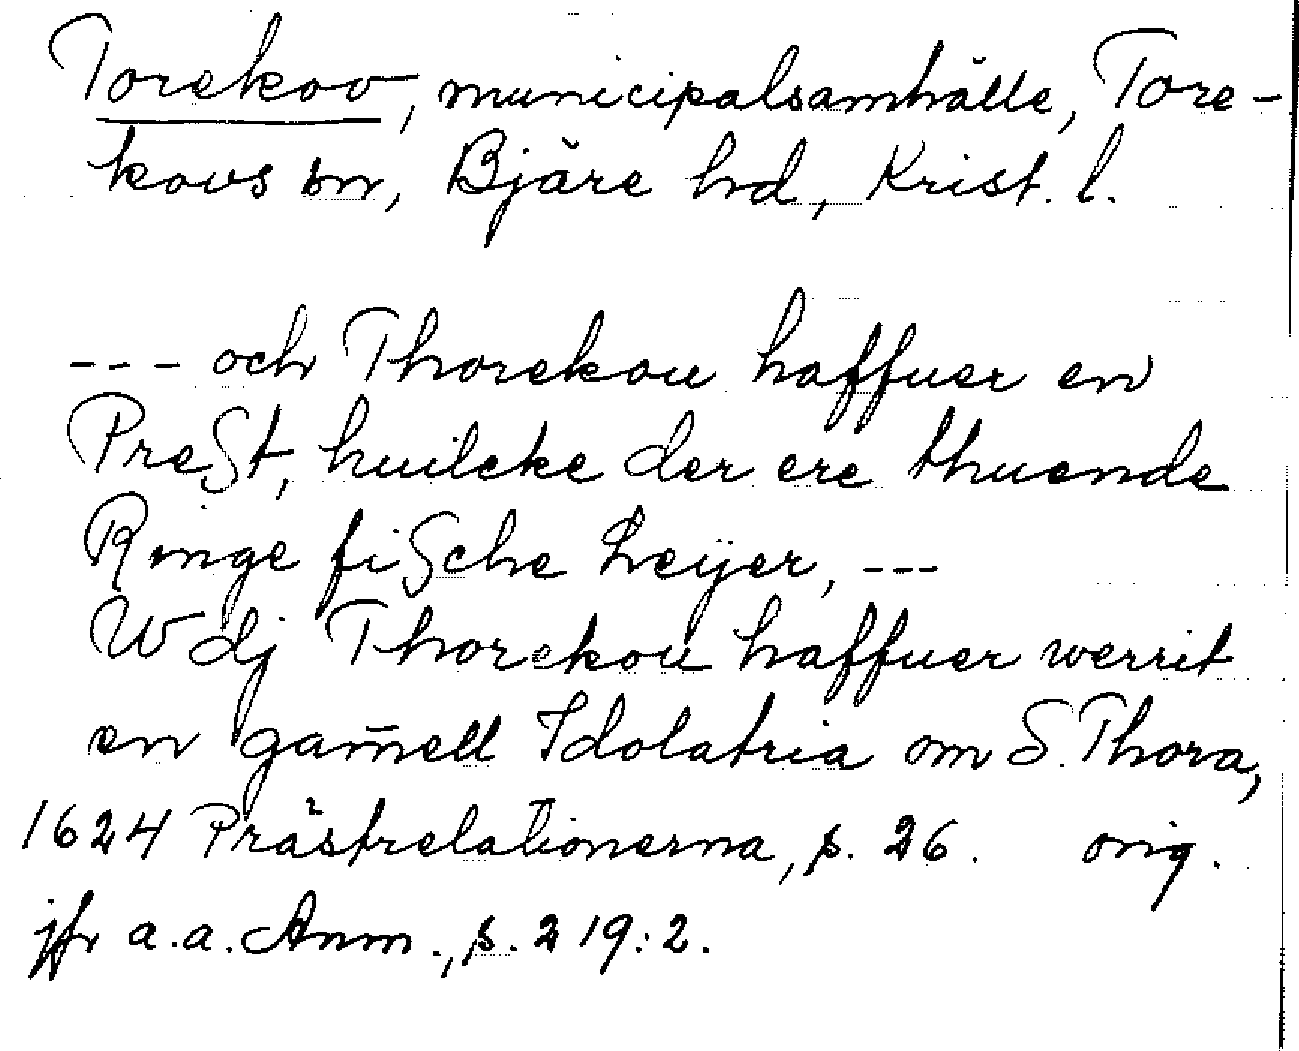 Torekov, municipalsamhälle, Tore-
kovs sn, Bjäre hd, Krist. l.
--- och Thorekou haffuer en
PreSt, huilcke der ere thuende
Ringe fiSche Leyer, ---
Wdj Thorekou haffuer werrit
en gam̄ell Idolatria om S. Thora,
1624 Prästrelationerna, s. 26. orig.
jfr a.a. Anm., s. 219:2.